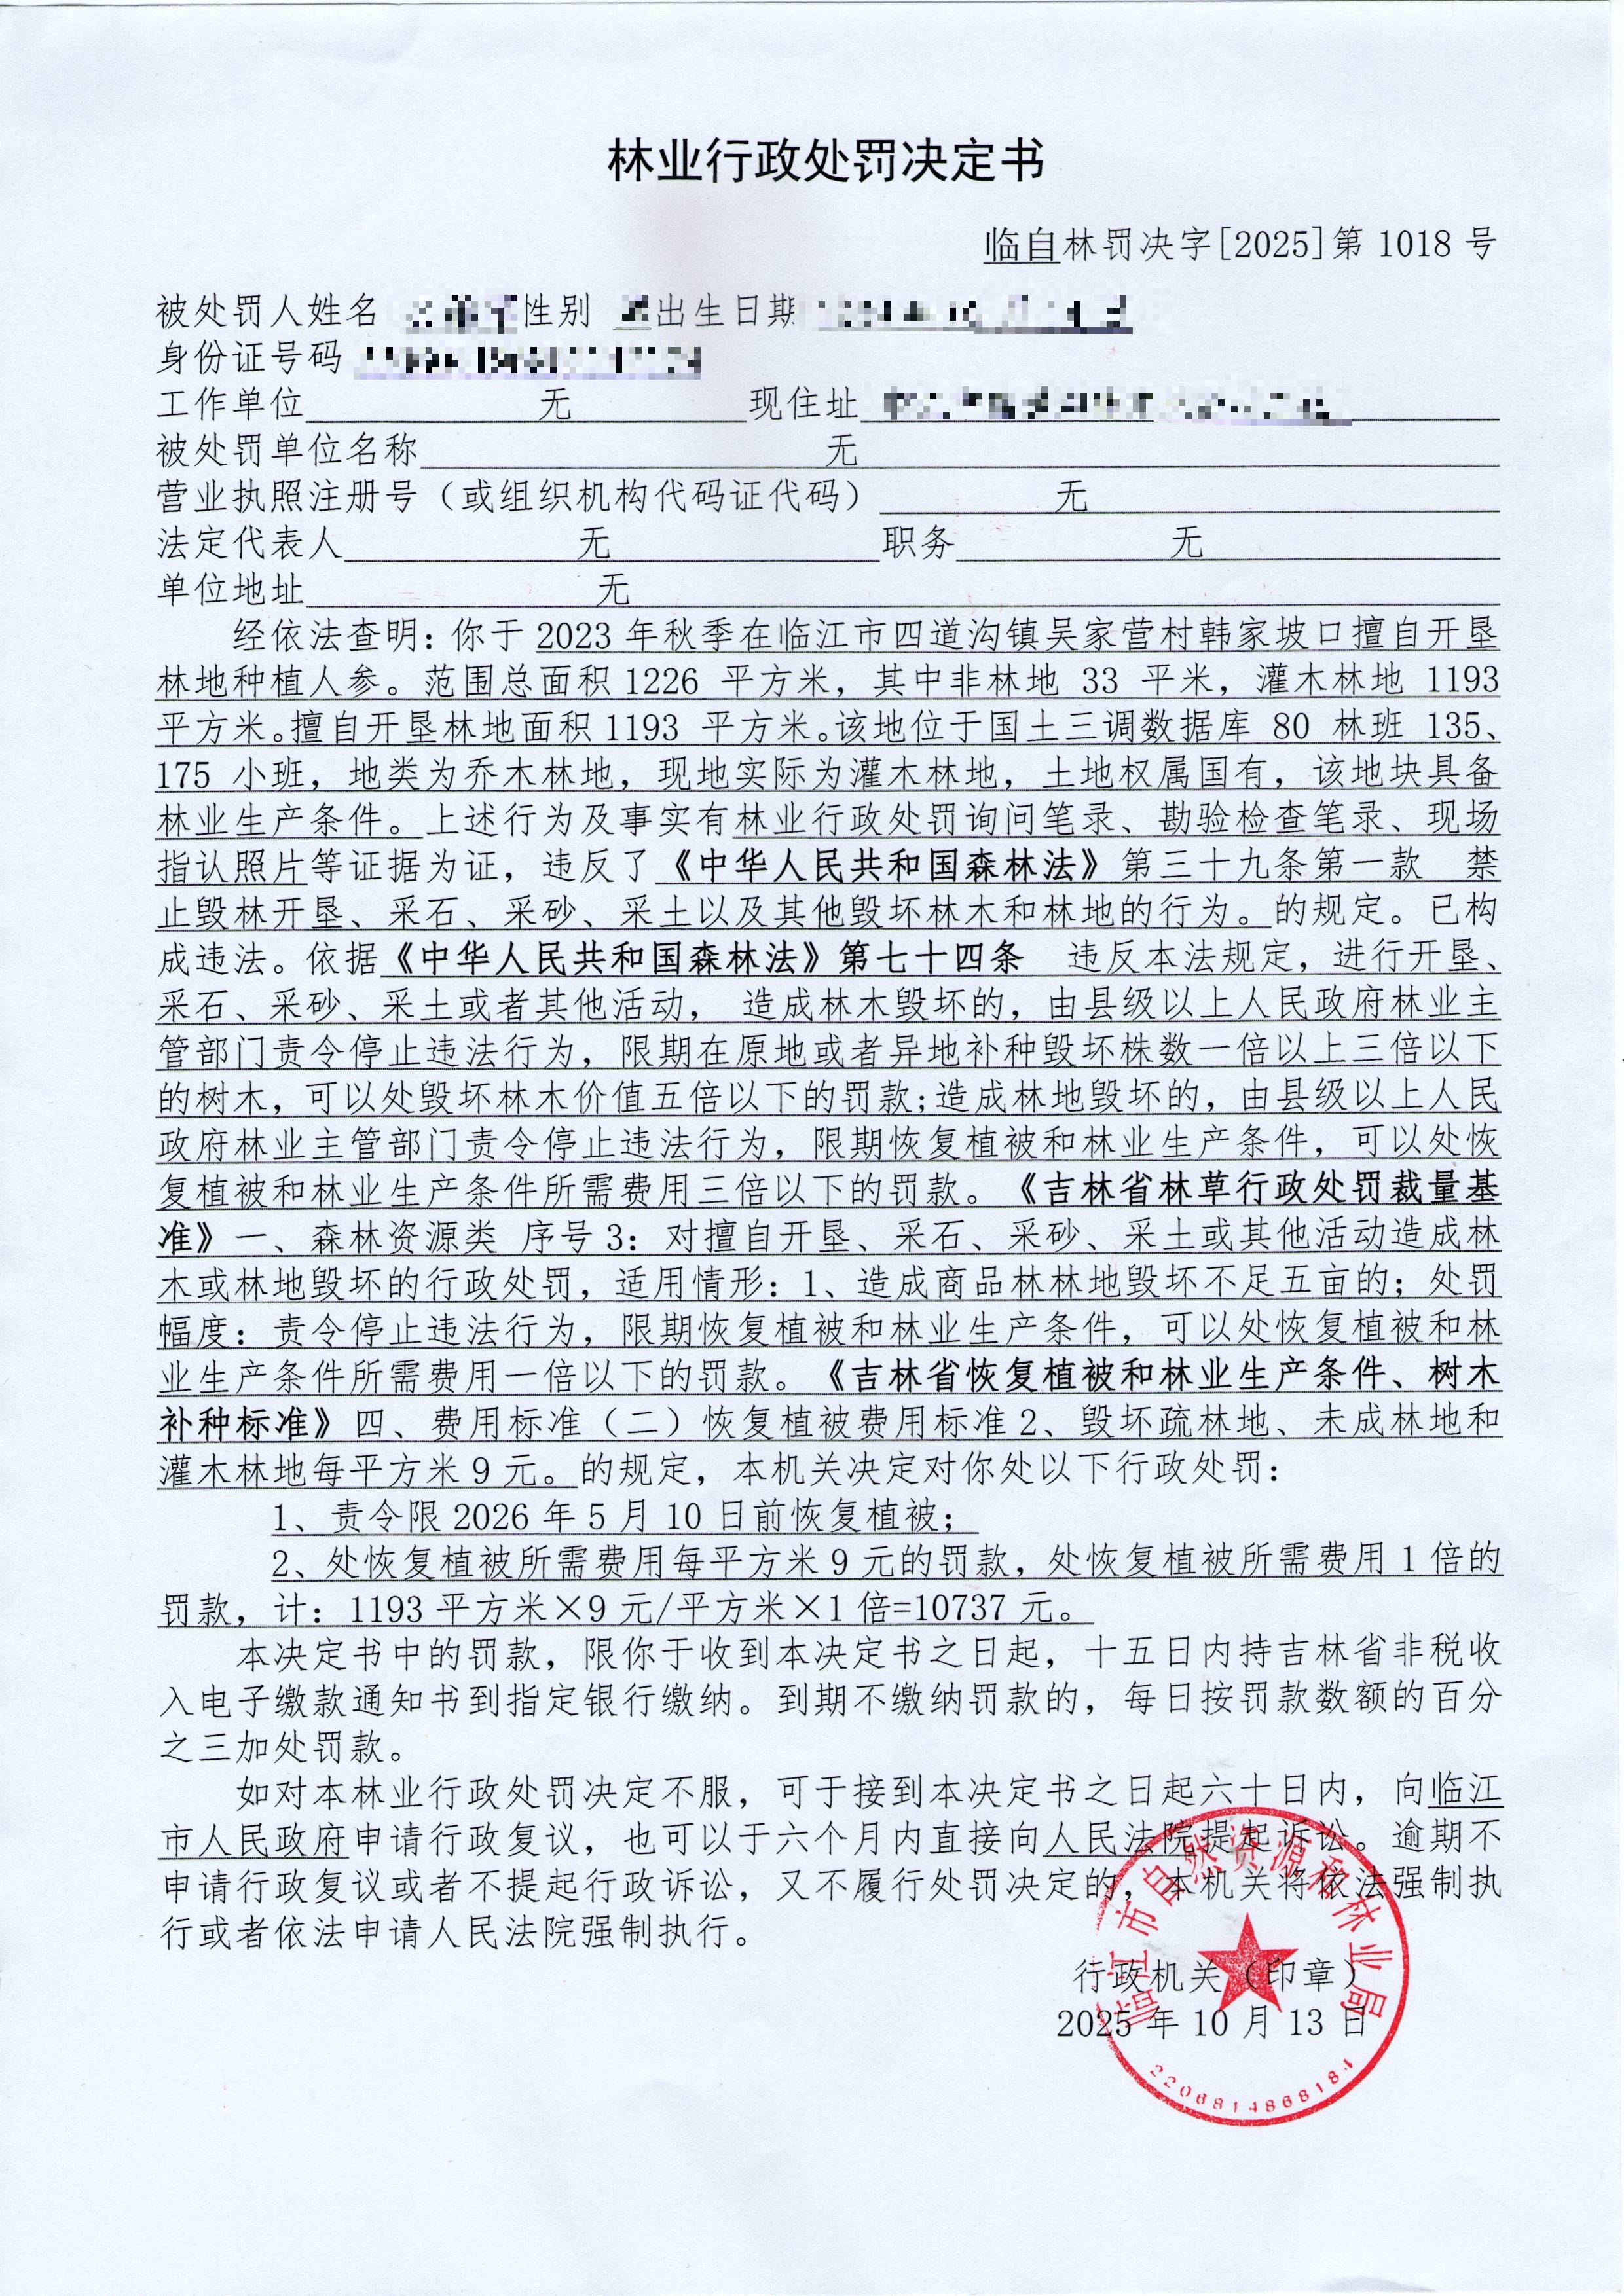 林业行政处罚决定书
临自林罚决字[2025]第 1018 号
被处罚人姓名 性别 出生日期
身份证号码
工作单位 无 现住址
被处罚单位名称 无
营业执照注册号（或组织机构代码证代码） 无
法定代表人 无 职务 无
单位地址 无
经依法查明：你于 2023 年秋季在临江市四道沟镇吴家营村韩家坡口擅自开垦
林地种植人参。范围总面积 1226 平方米，其中非林地 33 平米，灌木林地 1193
平方米。擅自开垦林地面积 1193 平方米。该地位于国土三调数据库 80 林班 135、
175 小班，地类为乔木林地，现地实际为灌木林地，土地权属国有，该地块具备
林业生产条件。上述行为及事实有林业行政处罚询问笔录、勘验检查笔录、现场
指认照片等证据为证，违反了《中华人民共和国森林法》第三十九条第一款 禁
止毁林开垦、采石、采砂、采土以及其他毁坏林木和林地的行为。的规定。已构
成违法。依据《中华人民共和国森林法》第七十四条 违反本法规定，进行开垦、
采石、采砂、采土或者其他活动， 造成林木毁坏的，由县级以上人民政府林业主
管部门责令停止违法行为，限期在原地或者异地补种毁坏株数一倍以上三倍以下
的树木，可以处毁坏林木价值五倍以下的罚款;造成林地毁坏的，由县级以上人民
政府林业主管部门责令停止违法行为，限期恢复植被和林业生产条件，可以处恢
复植被和林业生产条件所需费用三倍以下的罚款。《吉林省林草行政处罚裁量基
准》一、森林资源类 序号 3：对擅自开垦、采石、采砂、采土或其他活动造成林
木或林地毁坏的行政处罚，适用情形：1、造成商品林林地毁坏不足五亩的；处罚
幅度：责令停止违法行为，限期恢复植被和林业生产条件，可以处恢复植被和林
业生产条件所需费用一倍以下的罚款。《吉林省恢复植被和林业生产条件、树木
补种标准》四、费用标准（二）恢复植被费用标准 2、毁坏疏林地、未成林地和
灌木林地每平方米 9 元。的规定，本机关决定对你处以下行政处罚：
1、责令限 2026 年 5 月 10 日前恢复植被；
2、处恢复植被所需费用每平方米 9 元的罚款，处恢复植被所需费用 1 倍的
罚款，计：1193 平方米×9 元/平方米×1 倍=10737 元。
本决定书中的罚款，限你于收到本决定书之日起，十五日内持吉林省非税收
入电子缴款通知书到指定银行缴纳。到期不缴纳罚款的，每日按罚款数额的百分
之三加处罚款。
如对本林业行政处罚决定不服，可于接到本决定书之日起六十日内，向临江
市人民政府申请行政复议，也可以于六个月内直接向人民法院提起诉讼。逾期不
申请行政复议或者不提起行政诉讼，又不履行处罚决定的，本机关将依法强制执
行或者依法申请人民法院强制执行。
行政机关（印章）
2025 年 10 月 13 日
临江市自然资源和林业局
2206814868184